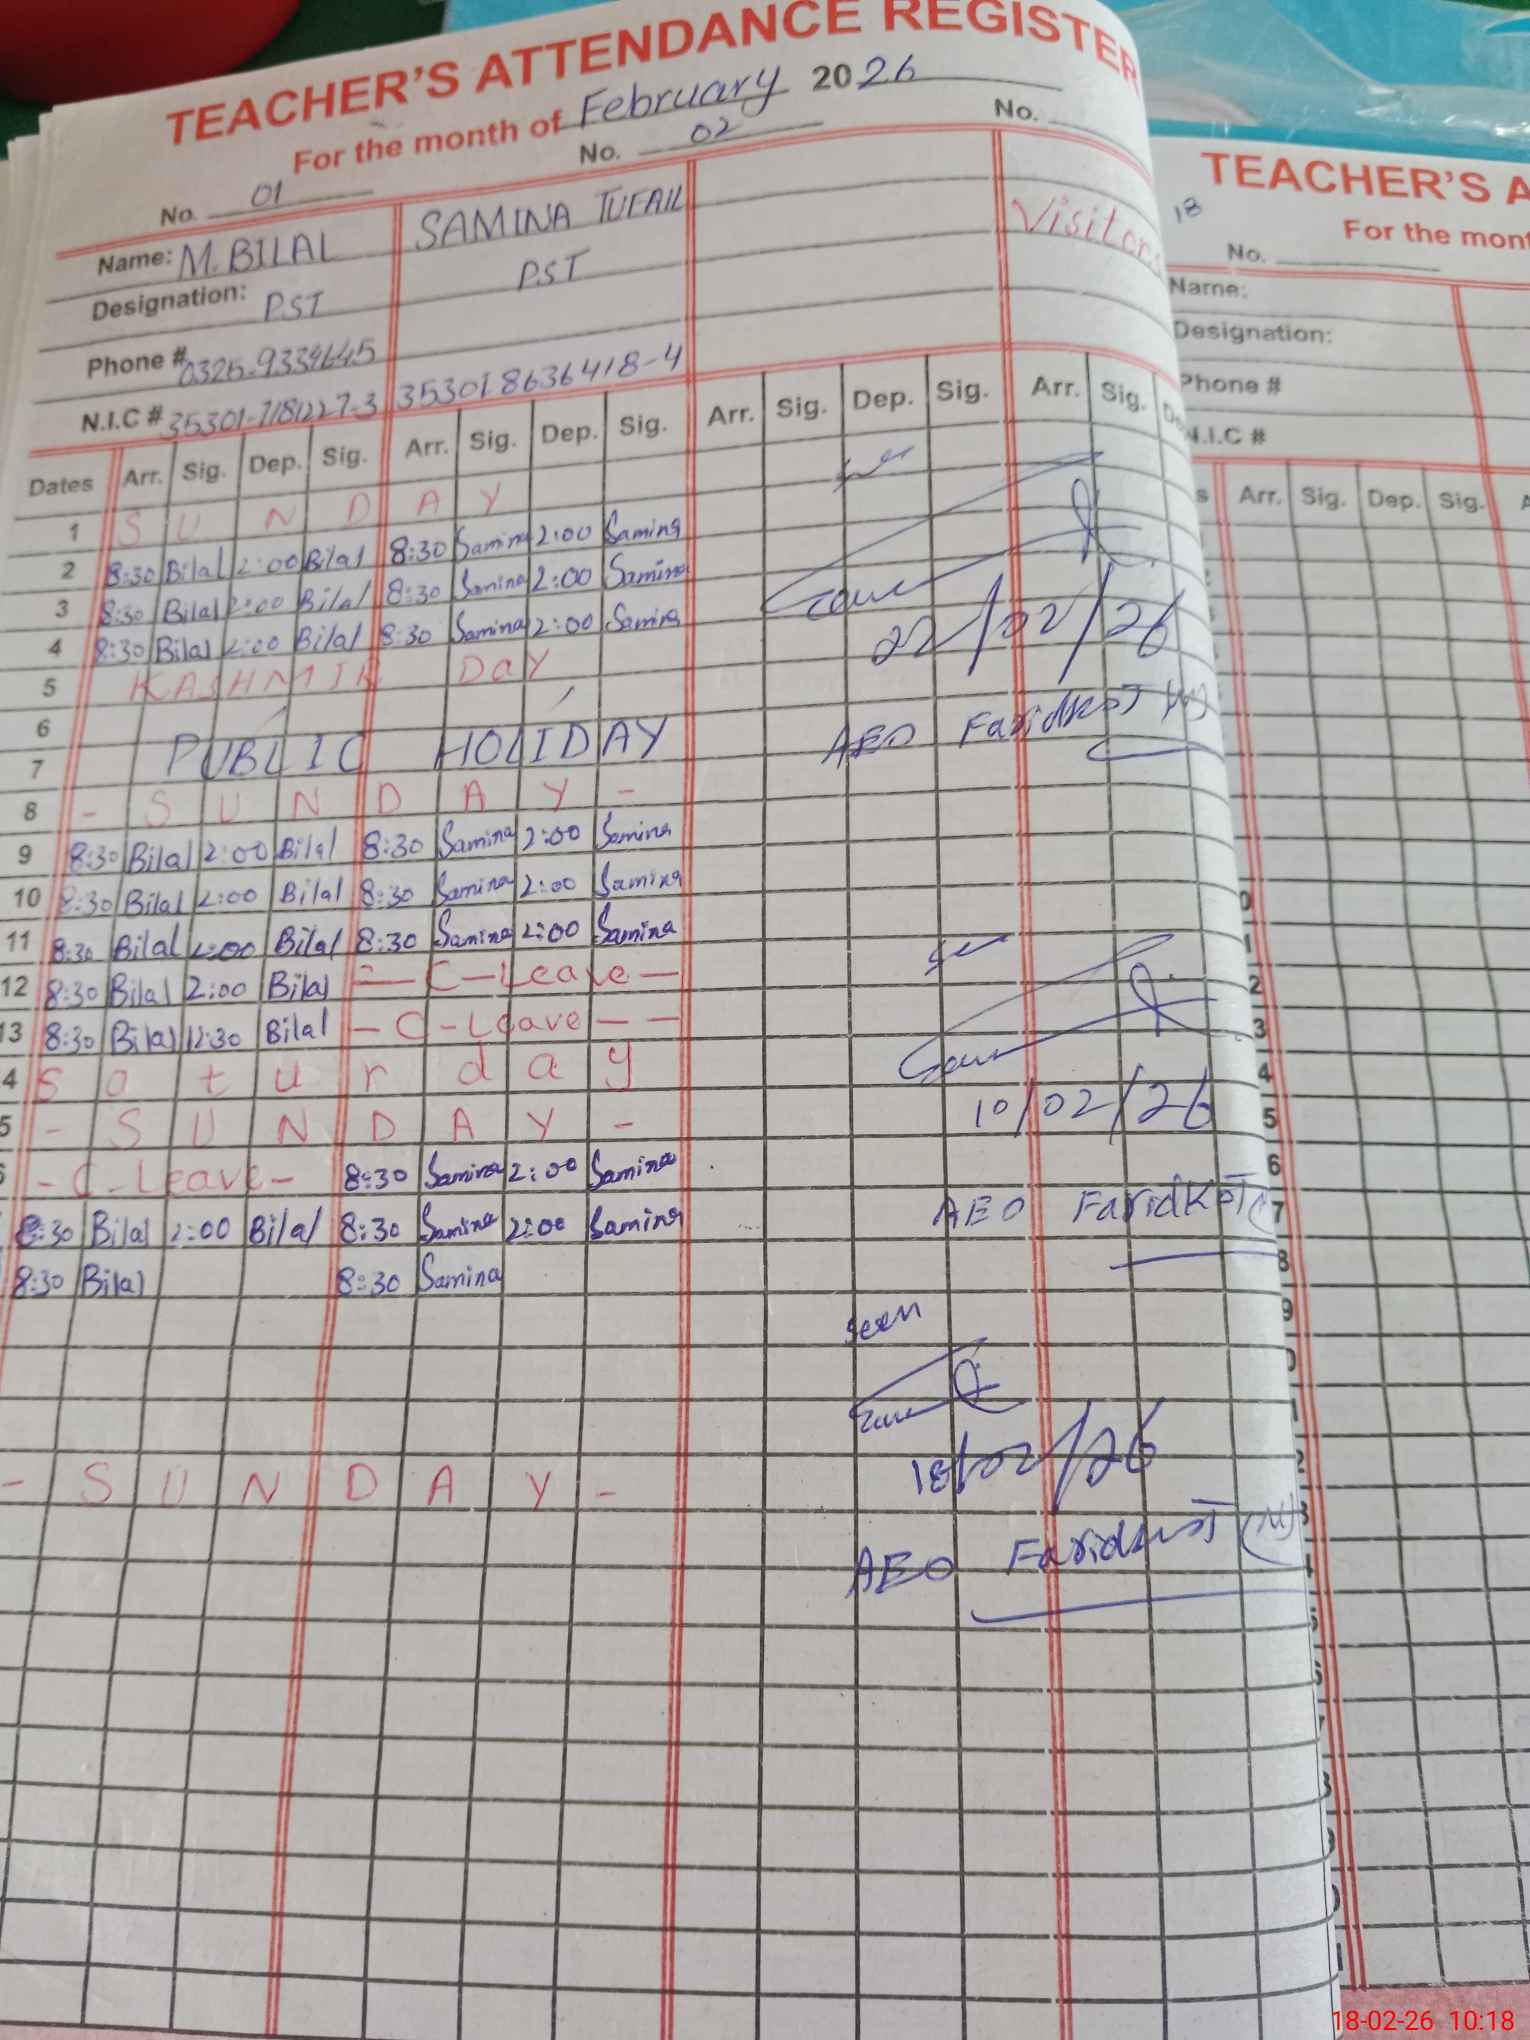 TEACHER'S ATTENDANCE REGISTER
For the month of February 2026
No. 01 No. 02 No.
Name: M. BILAL SAMINA TUFAIL Visitors
Designation: PST PST
Phone # 0325-9334645
N.I.C # 35301-7181227-3 353018636418-4
Dates Arr. Sig. Dep. Sig. Arr. Sig. Dep. Sig. Arr. Sig. Dep. Sig. Arr. Sig.
1 SUNDAY
2 8:30 Bilal 2:00 Bilal 8:30 Samina 2:00 Samina
3 8:30 Bilal 2:00 Bilal 8:30 Samina 2:00 Samina
4 8:30 Bilal 2:00 Bilal 8:30 Samina 2:00 Samina
5 KASHMIR DAY
6
7 PUBLIC HOLIDAY
8 - SUNDAY -
9 8:30 Bilal 2:00 Bilal 8:30 Samina 2:00 Samina
10 8:30 Bilal 2:00 Bilal 8:30 Samina 2:00 Samina
11 8:30 Bilal 2:00 Bilal 8:30 Samina 2:00 Samina
12 8:30 Bilal 2:00 Bilal - C-Leave -
13 8:30 Bilal 12:30 Bilal - C-Leave - -
4 Saturday
5 - SUNDAY -
- C-Leave - 8:30 Samina 2:00 Samina
8:30 Bilal 2:00 Bilal 8:30 Samina 2:00 Samina
8:30 Bilal 8:30 Samina
- SUNDAY -
/02/26
AEO Faridkot (M)
10/02/26
AEO Faridkot
seen
18/02/26
AEO Faridkot (M)
TEACHER'S A
18
For the mon
No.
Name:
Designation:
Phone #
N.I.C #
s Arr. Sig. Dep. Sig. A
18-02-26 10:18